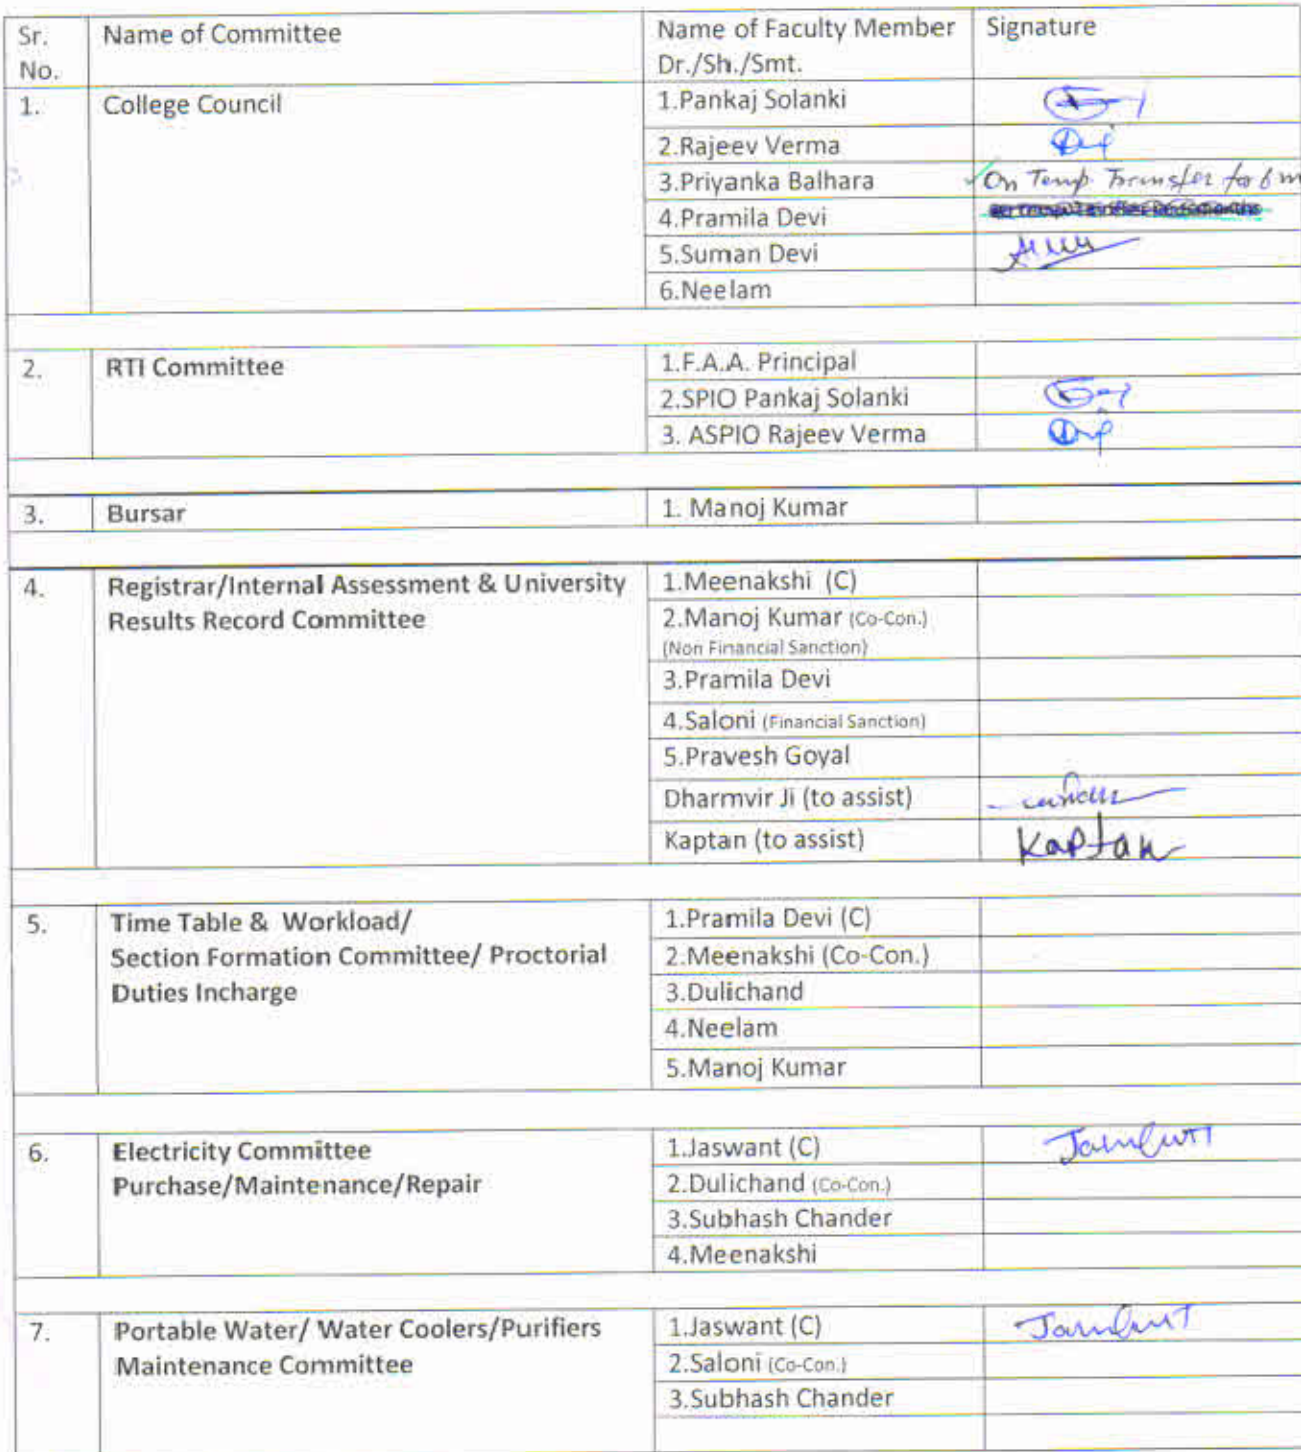 Sr. No. Name of Committee Name of Faculty Member Dr./Sh./Smt. Signature
1. College Council 1.Pankaj Solanki
2.Rajeev Verma
3.Priyanka Balhara On Temp. Transfer for 6 m
4.Pramila Devi
5.Suman Devi
6.Neelam
2. RTI Committee 1.F.A.A. Principal
2.SPIO Pankaj Solanki
3. ASPIO Rajeev Verma
3. Bursar 1. Manoj Kumar
4. Registrar/Internal Assessment & University 1.Meenakshi (C)
Results Record Committee 2.Manoj Kumar (Co-Con.)
(Non Financial Sanction)
3.Pramila Devi
4.Saloni (Financial Sanction)
5.Pravesh Goyal
Dharmvir Ji (to assist)
Kaptan (to assist) Kaptan
5. Time Table & Workload/ 1.Pramila Devi (C)
Section Formation Committee/ Proctorial 2.Meenakshi (Co-Con.)
Duties Incharge 3.Dulichand
4.Neelam
5.Manoj Kumar
6. Electricity Committee 1.Jaswant (C)
Purchase/Maintenance/Repair 2.Dulichand (Co-Con.)
3.Subhash Chander
4.Meenakshi
7. Portable Water/ Water Coolers/Purifiers 1.Jaswant (C)
Maintenance Committee 2.Saloni (Co-Con.)
3.Subhash Chander